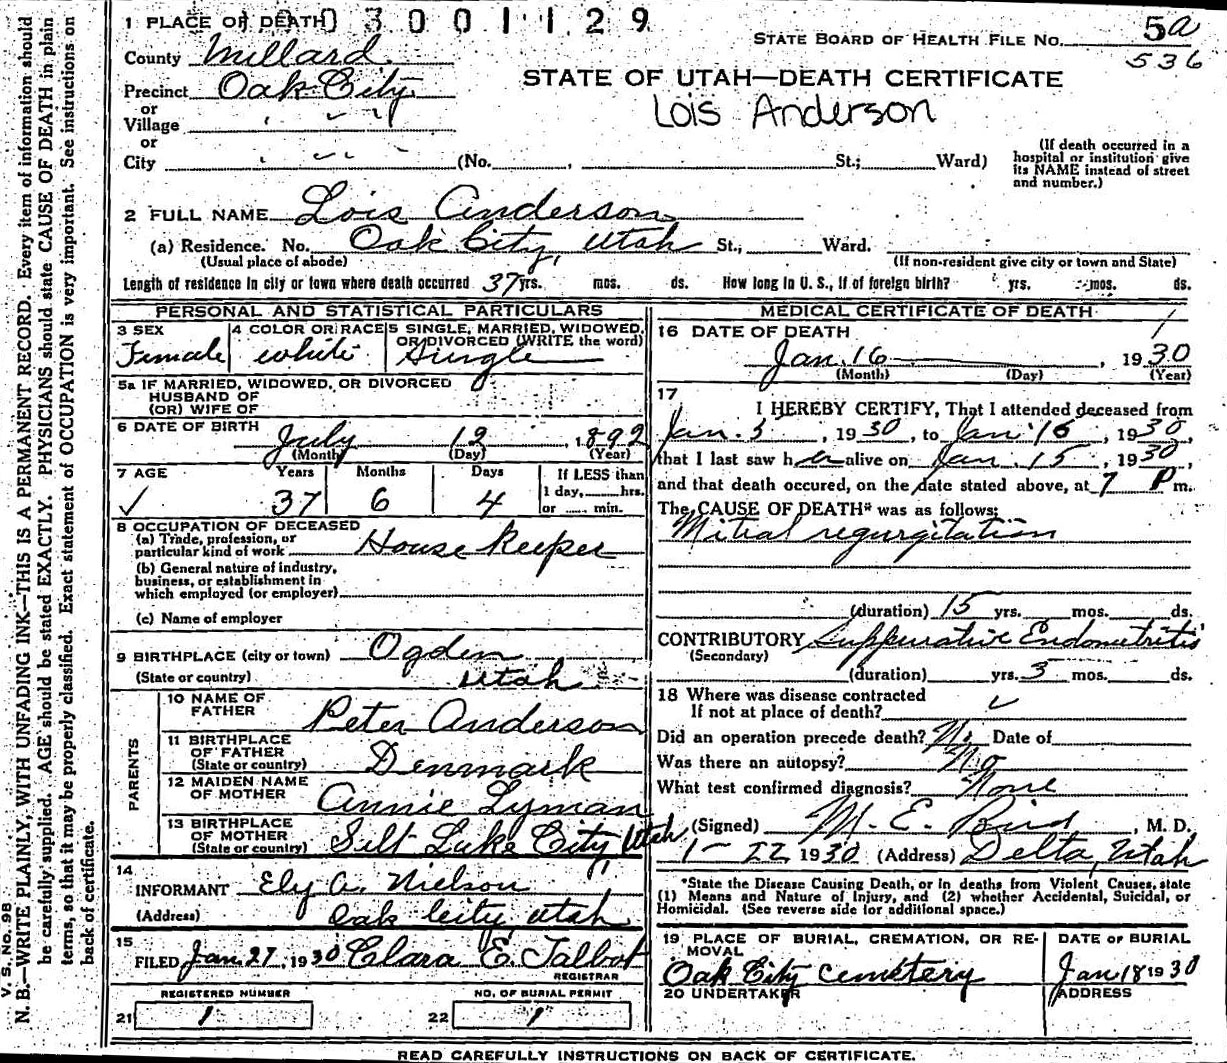 V. S. NO. 98
N. B.—WRITE PLAINLY, WITH UNFADING INK—THIS IS A PERMANENT RECORD. Every item of information should
be carefully supplied. AGE should be stated EXACTLY. PHYSICIANS should state CAUSE OF DEATH in plain
terms, so that it may be properly classified. Exact statement of OCCUPATION is very important. See instructions on
back of certificate.
3 0 0 1 1 2 9
1 PLACE OF DEATH
STATE BOARD OF HEALTH FILE No. 5a
536
County Millard
Precinct Oak City
STATE OF UTAH—DEATH CERTIFICATE
Lois Anderson
or
Village
or
City (No. , St.; Ward)
(If death occurred in a
hospital or institution give
its NAME instead of street
and number.)
2 FULL NAME Lois Anderson
(a) Residence. No. Oak City, Utah St., Ward.
(Usual place of abode) (If non-resident give city or town and State)
Length of residence in city or town where death occurred 37 yrs. mos. ds. How long in U. S., if of foreign birth? yrs. mos. ds.
PERSONAL AND STATISTICAL PARTICULARS
3 SEX Female
4 COLOR OR RACE white
5 SINGLE, MARRIED, WIDOWED,
OR DIVORCED (WRITE the word)
Single
5a IF MARRIED, WIDOWED, OR DIVORCED
HUSBAND OF
(OR) WIFE OF
6 DATE OF BIRTH July 12, 1892
(Month) (Day) (Year)
7 AGE Years Months Days If LESS than
1 day, hrs.
or min.
✓ 37 6 4
8 OCCUPATION OF DECEASED
(a) Trade, profession, or
particular kind of work House keeper
(b) General nature of industry,
business, or establishment in
which employed (or employer)
(c) Name of employer
9 BIRTHPLACE (city or town) Ogden
(State or country) Utah
PARENTS
10 NAME OF
FATHER Peter Anderson
11 BIRTHPLACE
OF FATHER
(State or country) Denmark
12 MAIDEN NAME
OF MOTHER Annie Lyman
13 BIRTHPLACE
OF MOTHER
(State or country) Salt Lake City Utah
14
INFORMANT Ely A. Nielson
(Address) Oak City, Utah
15
FILED Jan 27, 1930 Clara E. Talbot
REGISTRAR
REGISTERED NUMBER NO. OF BURIAL PERMIT
21 1 22 1
MEDICAL CERTIFICATE OF DEATH
16 DATE OF DEATH
Jan. 16, 1930
(Month) (Day) (Year)
17
I HEREBY CERTIFY, That I attended deceased from
Jan. 3, 1930, to Jan 16, 1930,
that I last saw her alive on Jan. 15, 1930,
and that death occured, on the date stated above, at 7 P m.
The CAUSE OF DEATH* was as follows:
Mitral regurgitation
(duration) 15 yrs. mos. ds.
CONTRIBUTORY Suppurative Endometritis
(Secondary)
(duration) yrs. 3 mos. ds.
18 Where was disease contracted
If not at place of death? ✓
Did an operation precede death? No Date of
Was there an autopsy? No
What test confirmed diagnosis? None
(Signed) M. E. Bird, M. D.
1-22 1930 (Address) Delta, Utah
*State the Disease Causing Death, or in deaths from Violent Causes, state
(1) Means and Nature of Injury, and (2) whether Accidental, Suicidal, or
Homicidal. (See reverse side for additional space.)
19 PLACE OF BURIAL, CREMATION, OR RE-
MOVAL
Oak City cemetery
DATE OF BURIAL
Jan 18 1930
20 UNDERTAKER
ADDRESS
READ CAREFULLY INSTRUCTIONS ON BACK OF CERTIFICATE.